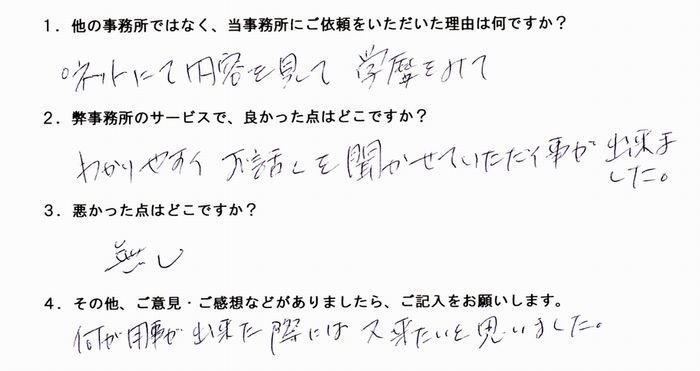 1．他の事務所ではなく、当事務所にご依頼をいただいた理由は何ですか？
○ネットにて内容を見て 学歴をみて
2．弊事務所のサービスで、良かった点はどこですか？
わかりやすく お話しを聞かせていただく事が 出来ま
した。
3．悪かった点はどこですか？
無し
4．その他、ご意見・ご感想などがありましたら、ご記入をお願いします。
何か用事が出来た際には又来たいと思いました。